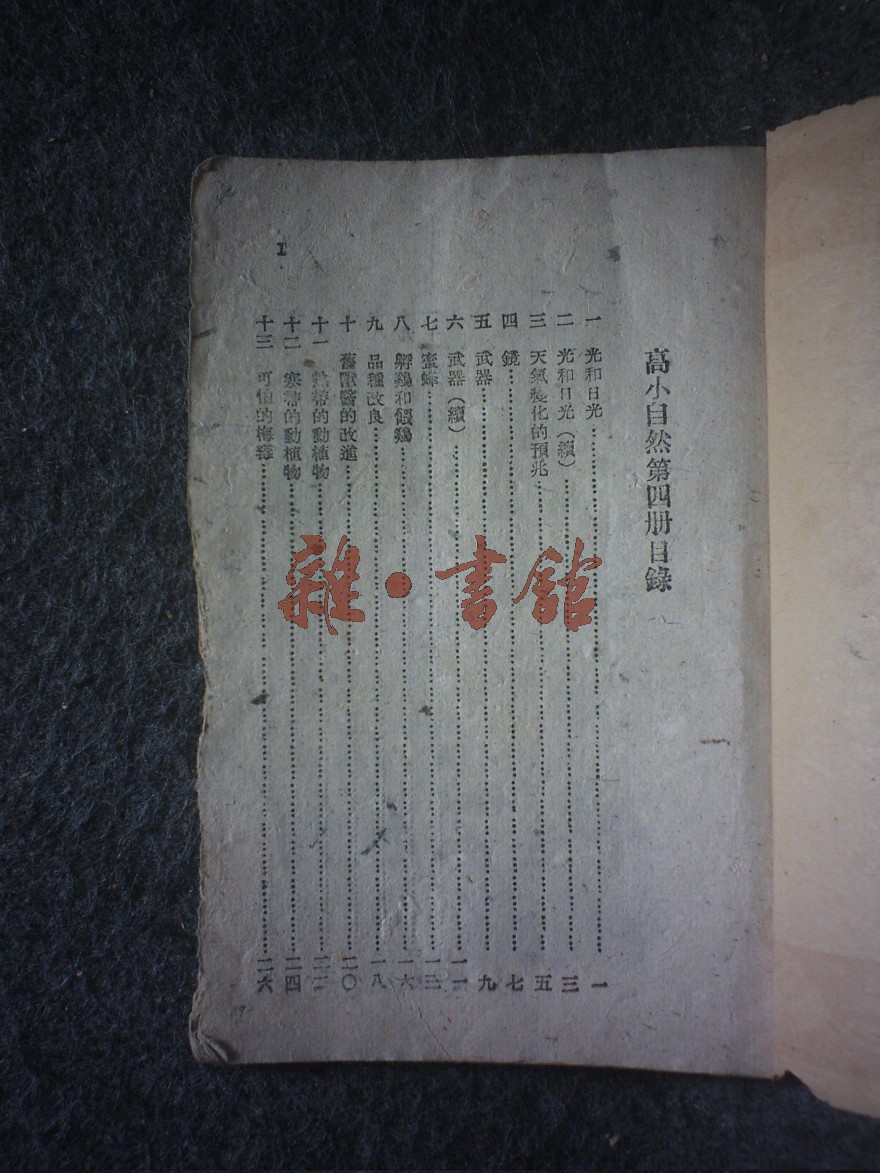 高小自然第四册目錄
一 光和日光……一
二 光和日光（續）……三
三 天氣變化的預兆……五
四 鏡……七
五 武器……九
六 武器（續）……一一
七 蜜蜂……一三
八 孵鷄和餵鷄……一六
九 品種改良……一八
十 舊獸醫的改進……二〇
十一 熱帶的動植物……二二
十二 寒帶的動植物……二四
十三 可怕的梅毒……二六
1
雜·書館